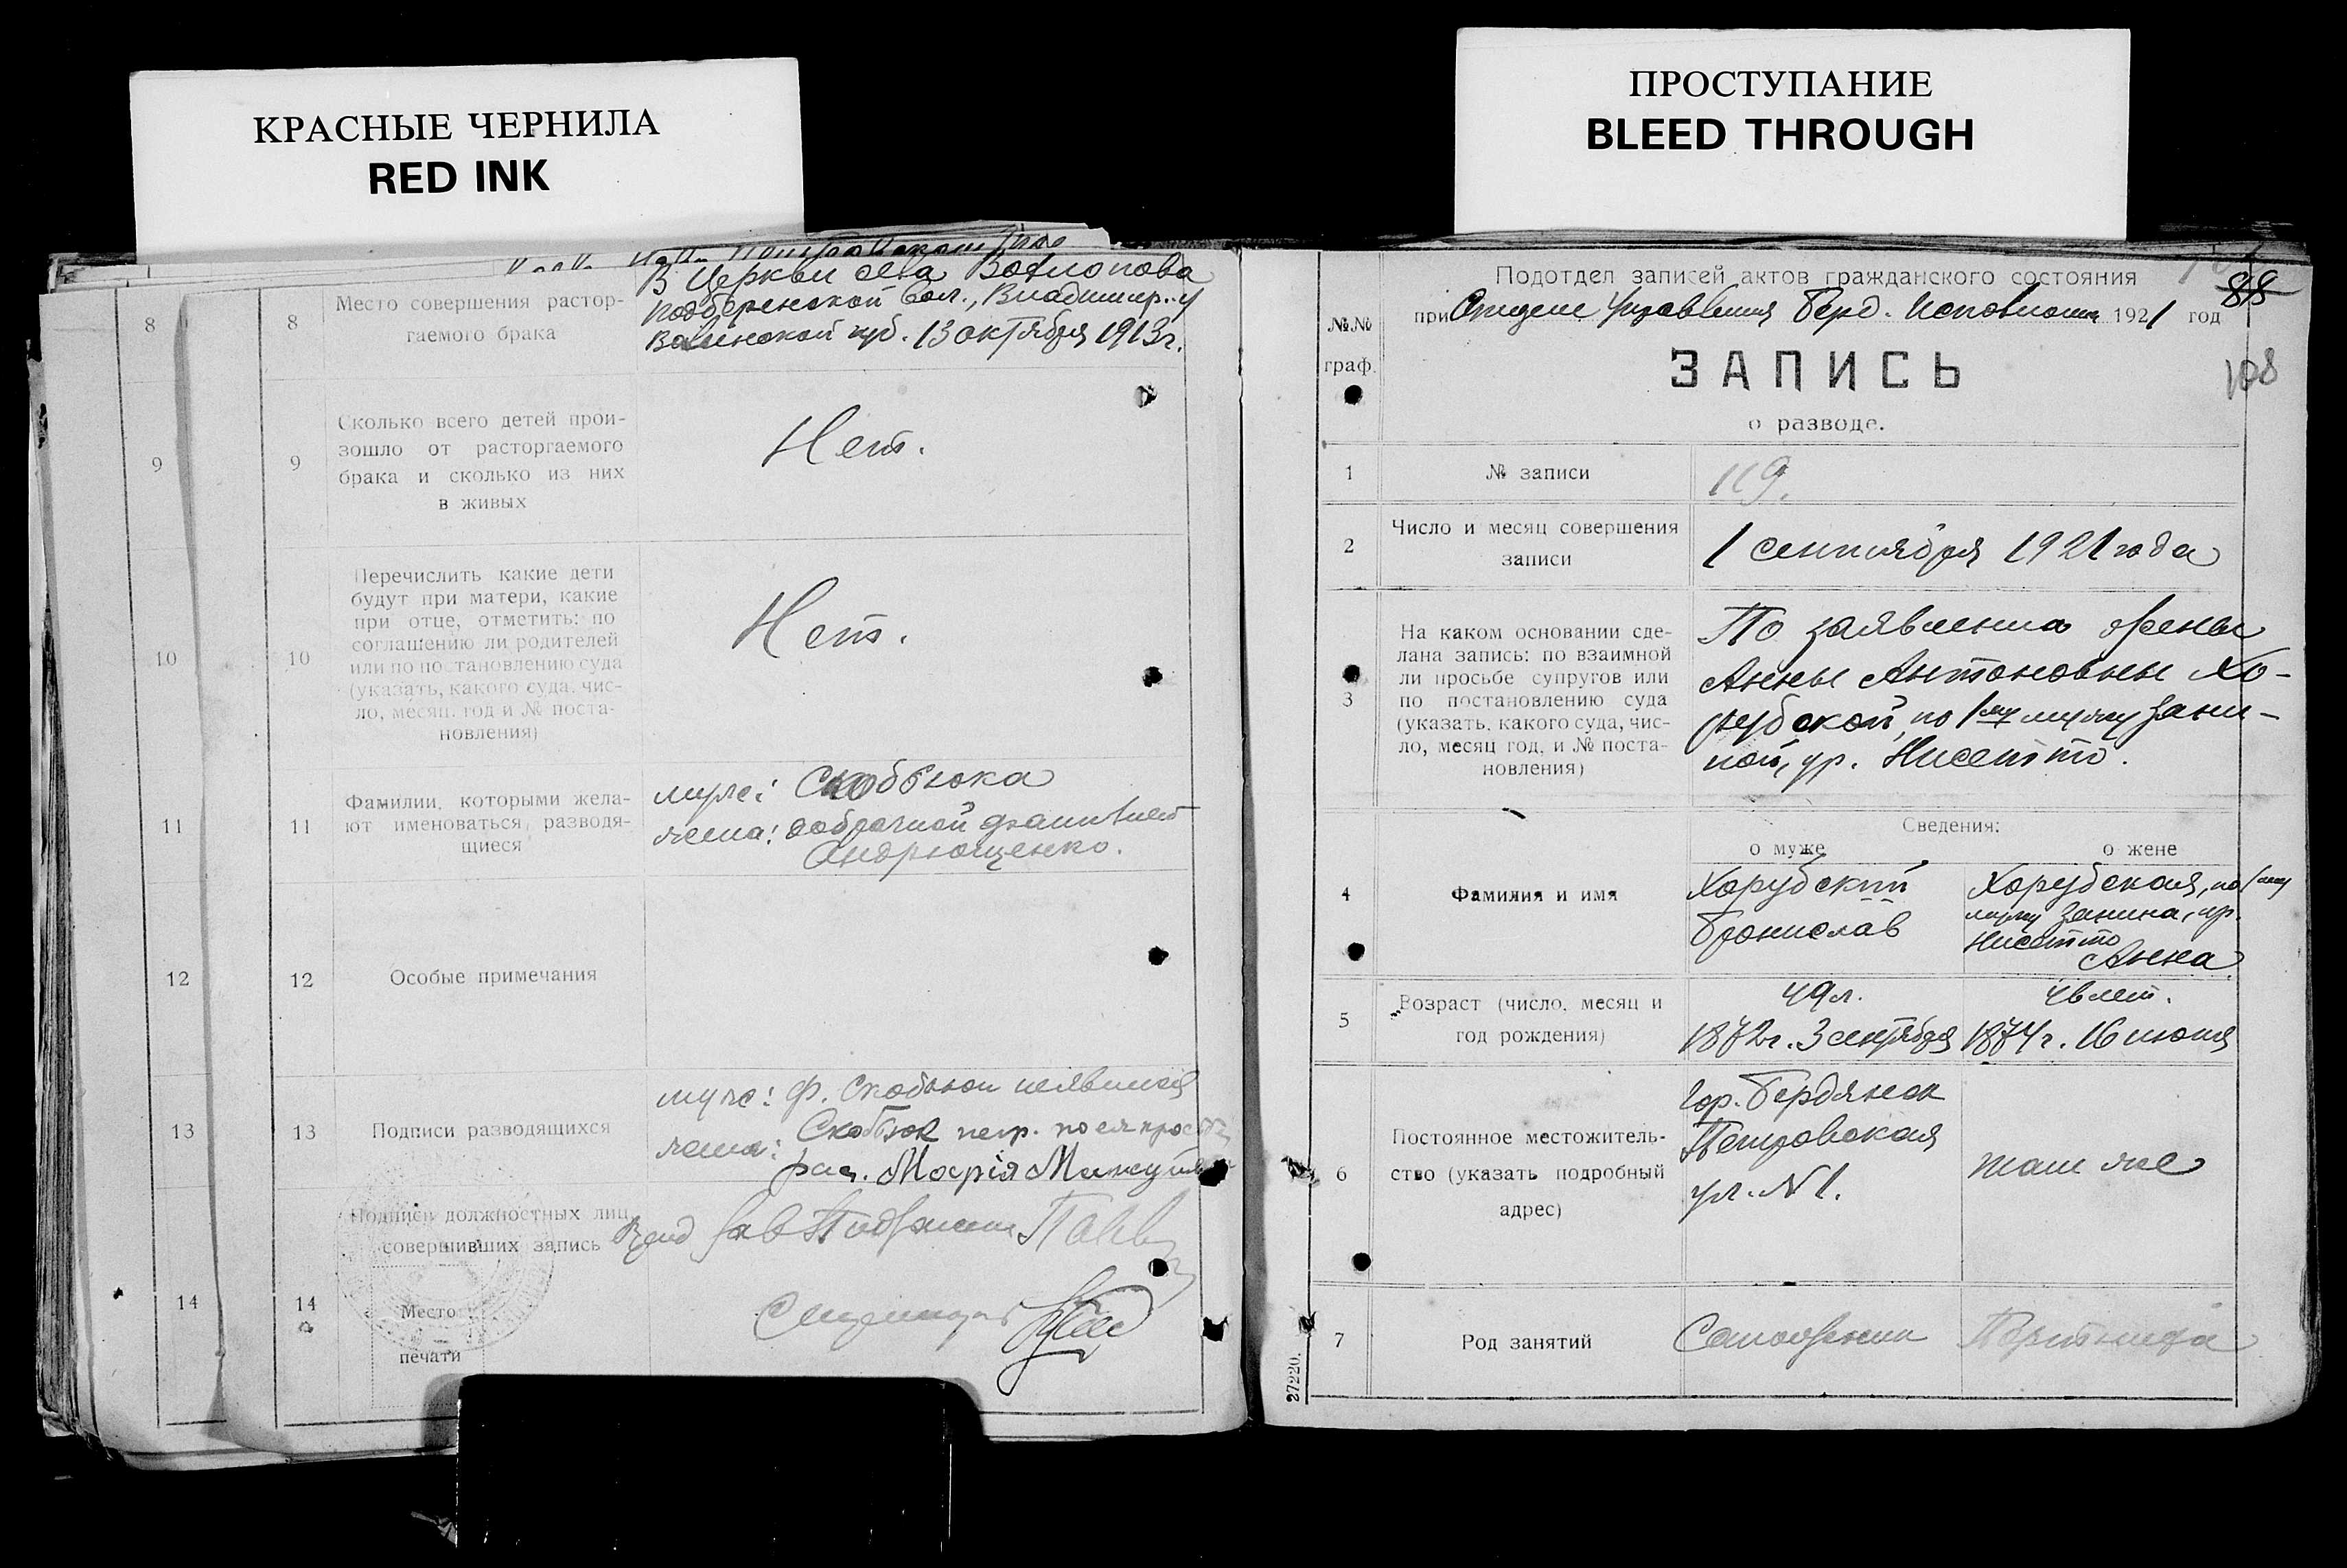 КРАСНЫЕ ЧЕРНИЛА
RED INK
ПРОСТУПАНИЕ
BLEED THROUGH
8
8
Место совершения растор-
гаемого брака
В Церкви села
Вол., Владимир. у
Волынской губ. 13 октября 1913г.
9
9
Сколько всего детей прои-
зошло от расторгаемого
брака и сколько из них
в живых
Нет.
10
10
Перечислить какие дети
будут при матери, какие
при отце, отметить: по
соглашению ли родителей
или по постановлению суда
(указать, какого суда, чис-
ло, месяц, год и № поста-
новления)
Нет.
11
11
Фамилии, которыми жела-
ют именоваться разводя-
щиеся
муж: Скобюка
жена: добрачной фамилией
Андрющенко.
12
12
Особые примечания
13
13
Подписи разводящихся
муж: Ф. Скобюк неявился
жена: Скобюк негр. по ея просьбе
рас. Марія
14
14
Подписи должностных лиц,
совершивших запись
Место
печати
Подотдел записей актов гражданского состояния
при Отделе Управления Берд. Исполкома 1921 год
88
108
№№
граф.
ЗАПИСЬ
о разводе.
1
№ записи
119.
2
Число и месяц совершения
записи
1 сентября 1921 года
3
На каком основании сде-
лана запись: по взаимной
ли просьбе супругов или
по постановлению суда
(указать, какого суда, чис-
ло, месяц год, и № поста-
новления)
По заявлению жены
Анны Антоновны Хо-
рубской, по 1му мужу Зани-
ной, ур. Нисетто.
Сведения:
о муже
о жене
4
Фамилия и имя
Хорубский
Бронислав
Хорубская, по 1му
мужу Занина, ур.
Нисетто
Анна
5
Возраст (число, месяц и
год рождения)
49л.
1872г. 3 сентября
46 лет.
1874г. 16 июня
6
Постоянное местожитель-
ство (указать подробный
адрес)
Гор. Бердянск
Петровская
ул. N 1.
там же
7
Род занятий
Сапожник
Портниха
27220.